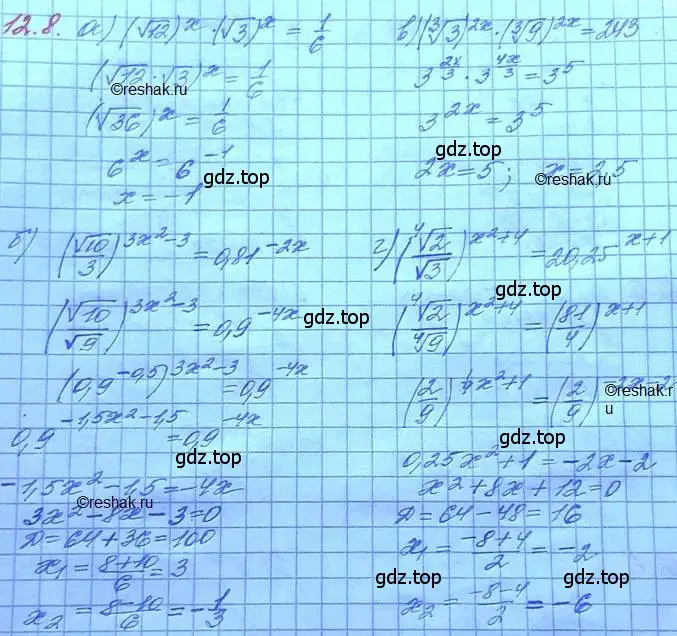 12.8. а) (√12)^x · (√3)^x = 1/6
(√12 · √3)^x = 1/6
©reshak.ru
(√36)^x = 1/6
6^x = 6^-1
gdz.top
x = -1
в) (∛3)^2x · (∛9)^2x = 243
3^(2x/3) · 3^(4x/3) = 3^5
3^2x = 3^5
gdz.top
2x = 5; x = 2,5
©reshak.ru
б) (√10/3)^(3x²-3) = 0,81^-2x
(√10/√9)^(3x²-3) = 0,9^-4x
gdz.top
(0,9^-0,5)^(3x²-3) = 0,9^-4x
0,9^(-1,5x²-1,5) = 0,9^-4x
gdz.top
-1,5x² - 1,5 = -4x
©reshak.ru
3x² - 8x - 3 = 0
D = 64 + 36 = 100
x₁ = (8+10)/6 = 3
x₂ = (8-10)/6 = -1/3
г) (⁴√2/√3)^(x²+4) = 20,25^(x+1)
gdz.top
(⁴√2/⁴√9)^(x²+4) = (81/4)^(x+1)
(2/9)^(¼x²+1) = (2/9)^(-2x-2)
©reshak.ru
0,25x² + 1 = -2x - 2
x² + 8x + 12 = 0
D = 64 - 48 = 16
x₁ = (-8+4)/2 = -2
gdz.top
x₂ = (-8-4)/2 = -6